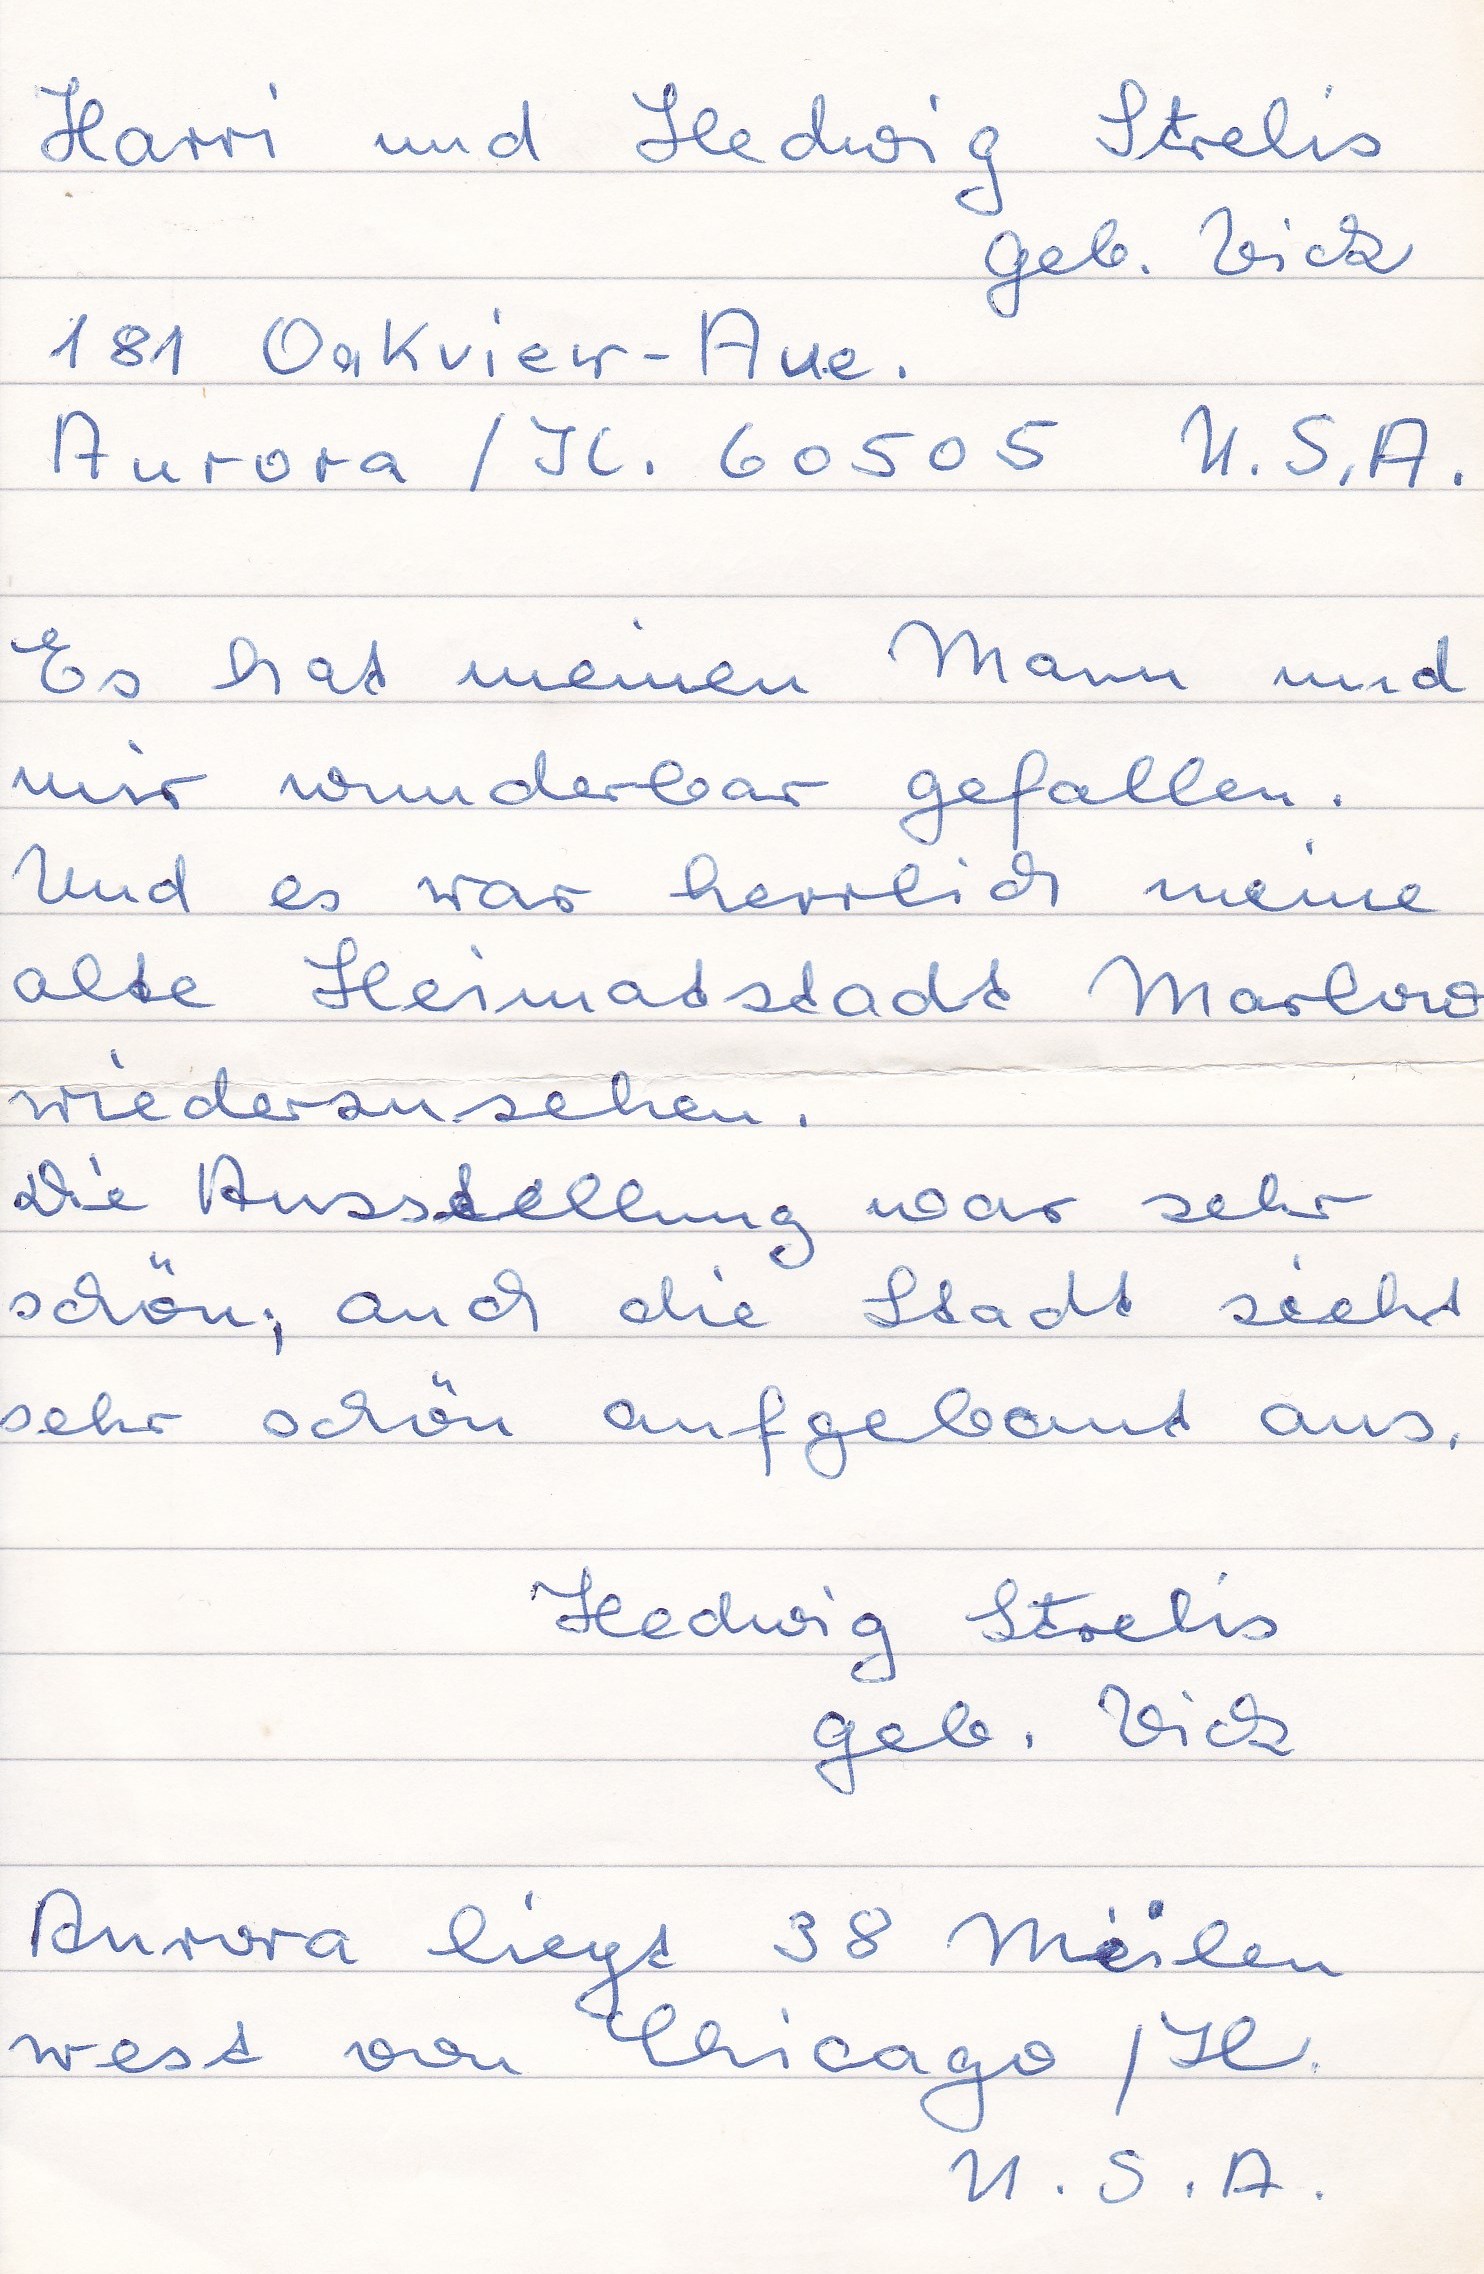 Harri und Hedwig Strelis
geb. Vick
181 Oakview-Ave.
Aurora / Il. 60505 U.S.A.
Es hat meinen Mann und
mir wunderbar gefallen.
Und es war herrlich meine
alte Heimatstadt Marlow
wiederzusehen.
Die Ausstellung war sehr
schön; auch die Stadt sieht
sehr schön aufgebaut aus.
Hedwig Strelis
geb. Vick
Aurora liegt 38 Meilen
west von Chicago / Il.
U.S.A.